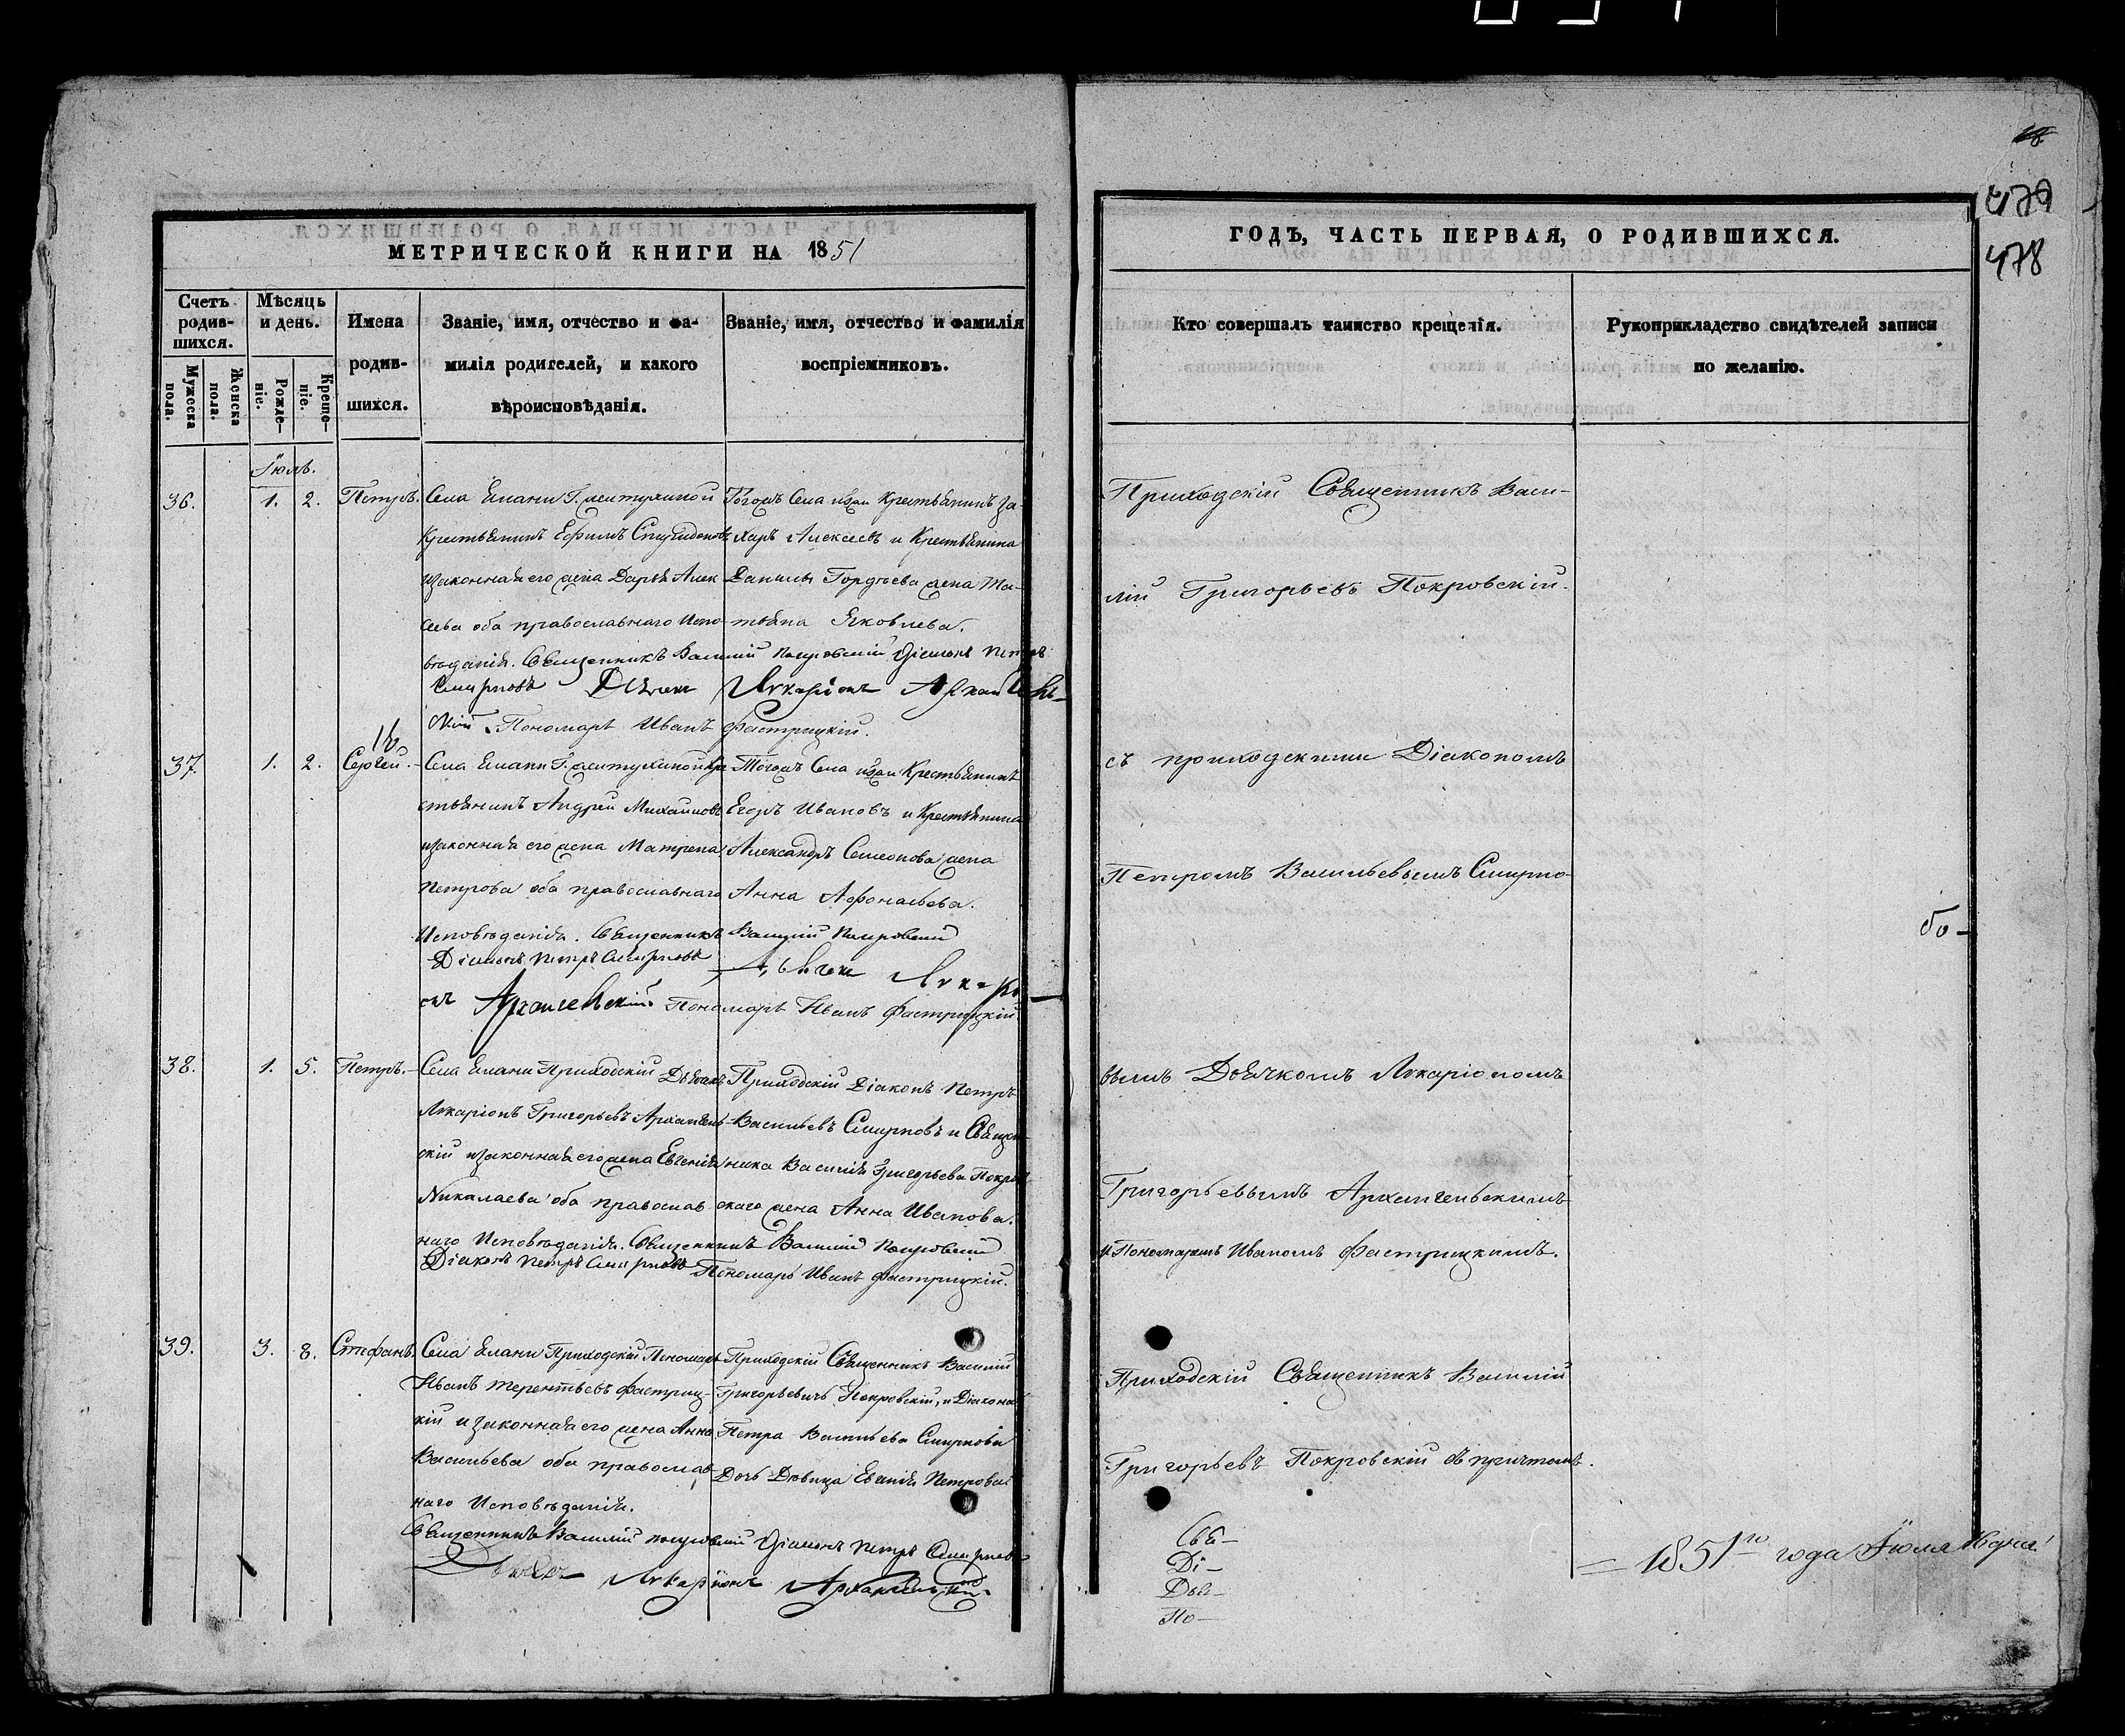 МЕТРИЧЕСКОЙ КНИГИ НА 1851
Счетъ родив-шихся.
Мужеска пола.
Женска пола.
Мѣсяцъ и день.
Рожде-ніе.
Креще-ніе.
Имена родив-шихся.
Званіе, имя, отчество и фа-
милія родителей, и какого
вѣроисповѣданія.
Званіе, имя, отчество и фамилія
воспріемниковъ.
Іюль.
36. 1. 2. Петръ.
Села Елани Г.
Крестьянинъ Ефимъ Спиридоновъ
и законная его жена Дарья Алек
сеева оба православнаго Испо-
вѣданія. Священникъ Василій Покровскій Діаконъ Петръ
Смирновъ Дьячекъ Иларіонъ Архангель-
скій Пономарь Иванъ Фастрицкій.
Тогожъ Села Крестьянинъ За-
харъ Алексеевъ и Крестьянина
Данилы Гордѣева жена Та-
тьяна Яковлева.
37. 1. 2. Сергей.
16
Села Елани Г. Кре
стьянинъ Андрей Михайловъ
и законная его жена Матрена
Петрова оба православнаго
Исповѣданія. Священникъ Василій Покровскій
Діаконъ Петръ Смирновъ Дьячекъ Иларі-
онъ Архангельскій Пономарь Иванъ Фастрицкій.
Тогожъ Села Крестьянинъ
Егоръ Ивановъ и Крестьянина
Александръ Семенова жена
Анна Афонасьева.
38. 1. 5. Петръ.
Села Елани Приходскій Дьячекъ
Иларіонъ Григорьевъ Архангель-
скій и законная его жена Евгенія
Николаева оба православ-
наго Исповѣданія. Священникъ Василій Покровскій
Діаконъ Петръ Смирновъ Пономарь Иванъ Фастрицкій.
Приходскій Діаконъ Петръ
Васильевъ Смирновъ и Священ-
ника Василія Григорьева Покров-
скаго жена Анна Иванова.
39. 3. 8. Стефанъ.
Села Елани Приходскій Пономарь
Иванъ Терентьевъ Фастриц-
кій и законная его жена Анна
Васильева оба православ-
наго Исповѣданія.
Священникъ Василій Покровскій Діаконъ Петръ Смирновъ
Дьячекъ Иларіонъ Архангельскій
Приходскій Священникъ Василій
Григорьевичь Покровскій, и Діакона
Петра Васильева Смирнова
Дочь Дѣвица Петрова
18
479
478
ГОДЪ, ЧАСТЬ ПЕРВАЯ, О РОДИВШИХСЯ.
Кто совершалъ таинство крещенія.
Рукоприкладство свидѣтелей записи
по желанію.
Приходскій Священникъ Васи-
лій Григорьевъ Покровскій
съ приходскими Діакономъ
Петромъ Васильевымъ Смирно-
вымъ Дьячкомъ Иларіономъ
Григорьевымъ Архангельскимъ
и Пономаремъ Иваномъ Фастрицкимъ.
Приходскій Священникъ Василій
Григорьевъ Покровскій съ причтомъ.
Свя-
Ді-
Дья-
По-
1851го года Іюля 16 дня